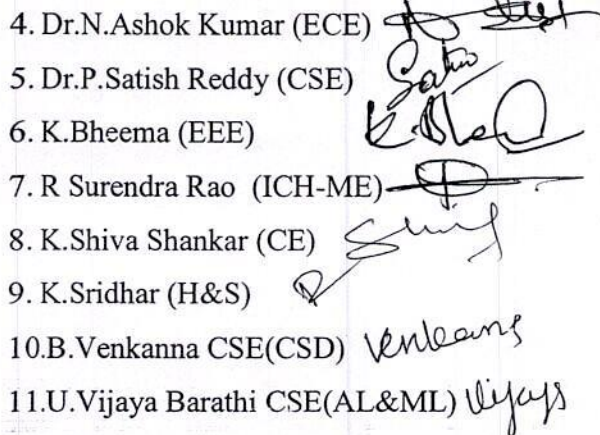 4. Dr.N.Ashok Kumar (ECE)
5. Dr.P.Satish Reddy (CSE)
6. K.Bheema (EEE)
7. R Surendra Rao (ICH-ME)
8. K.Shiva Shankar (CE)
9. K.Sridhar (H&S)
10.B.Venkanna CSE(CSD)
11.U.Vijaya Barathi CSE(AL&ML)